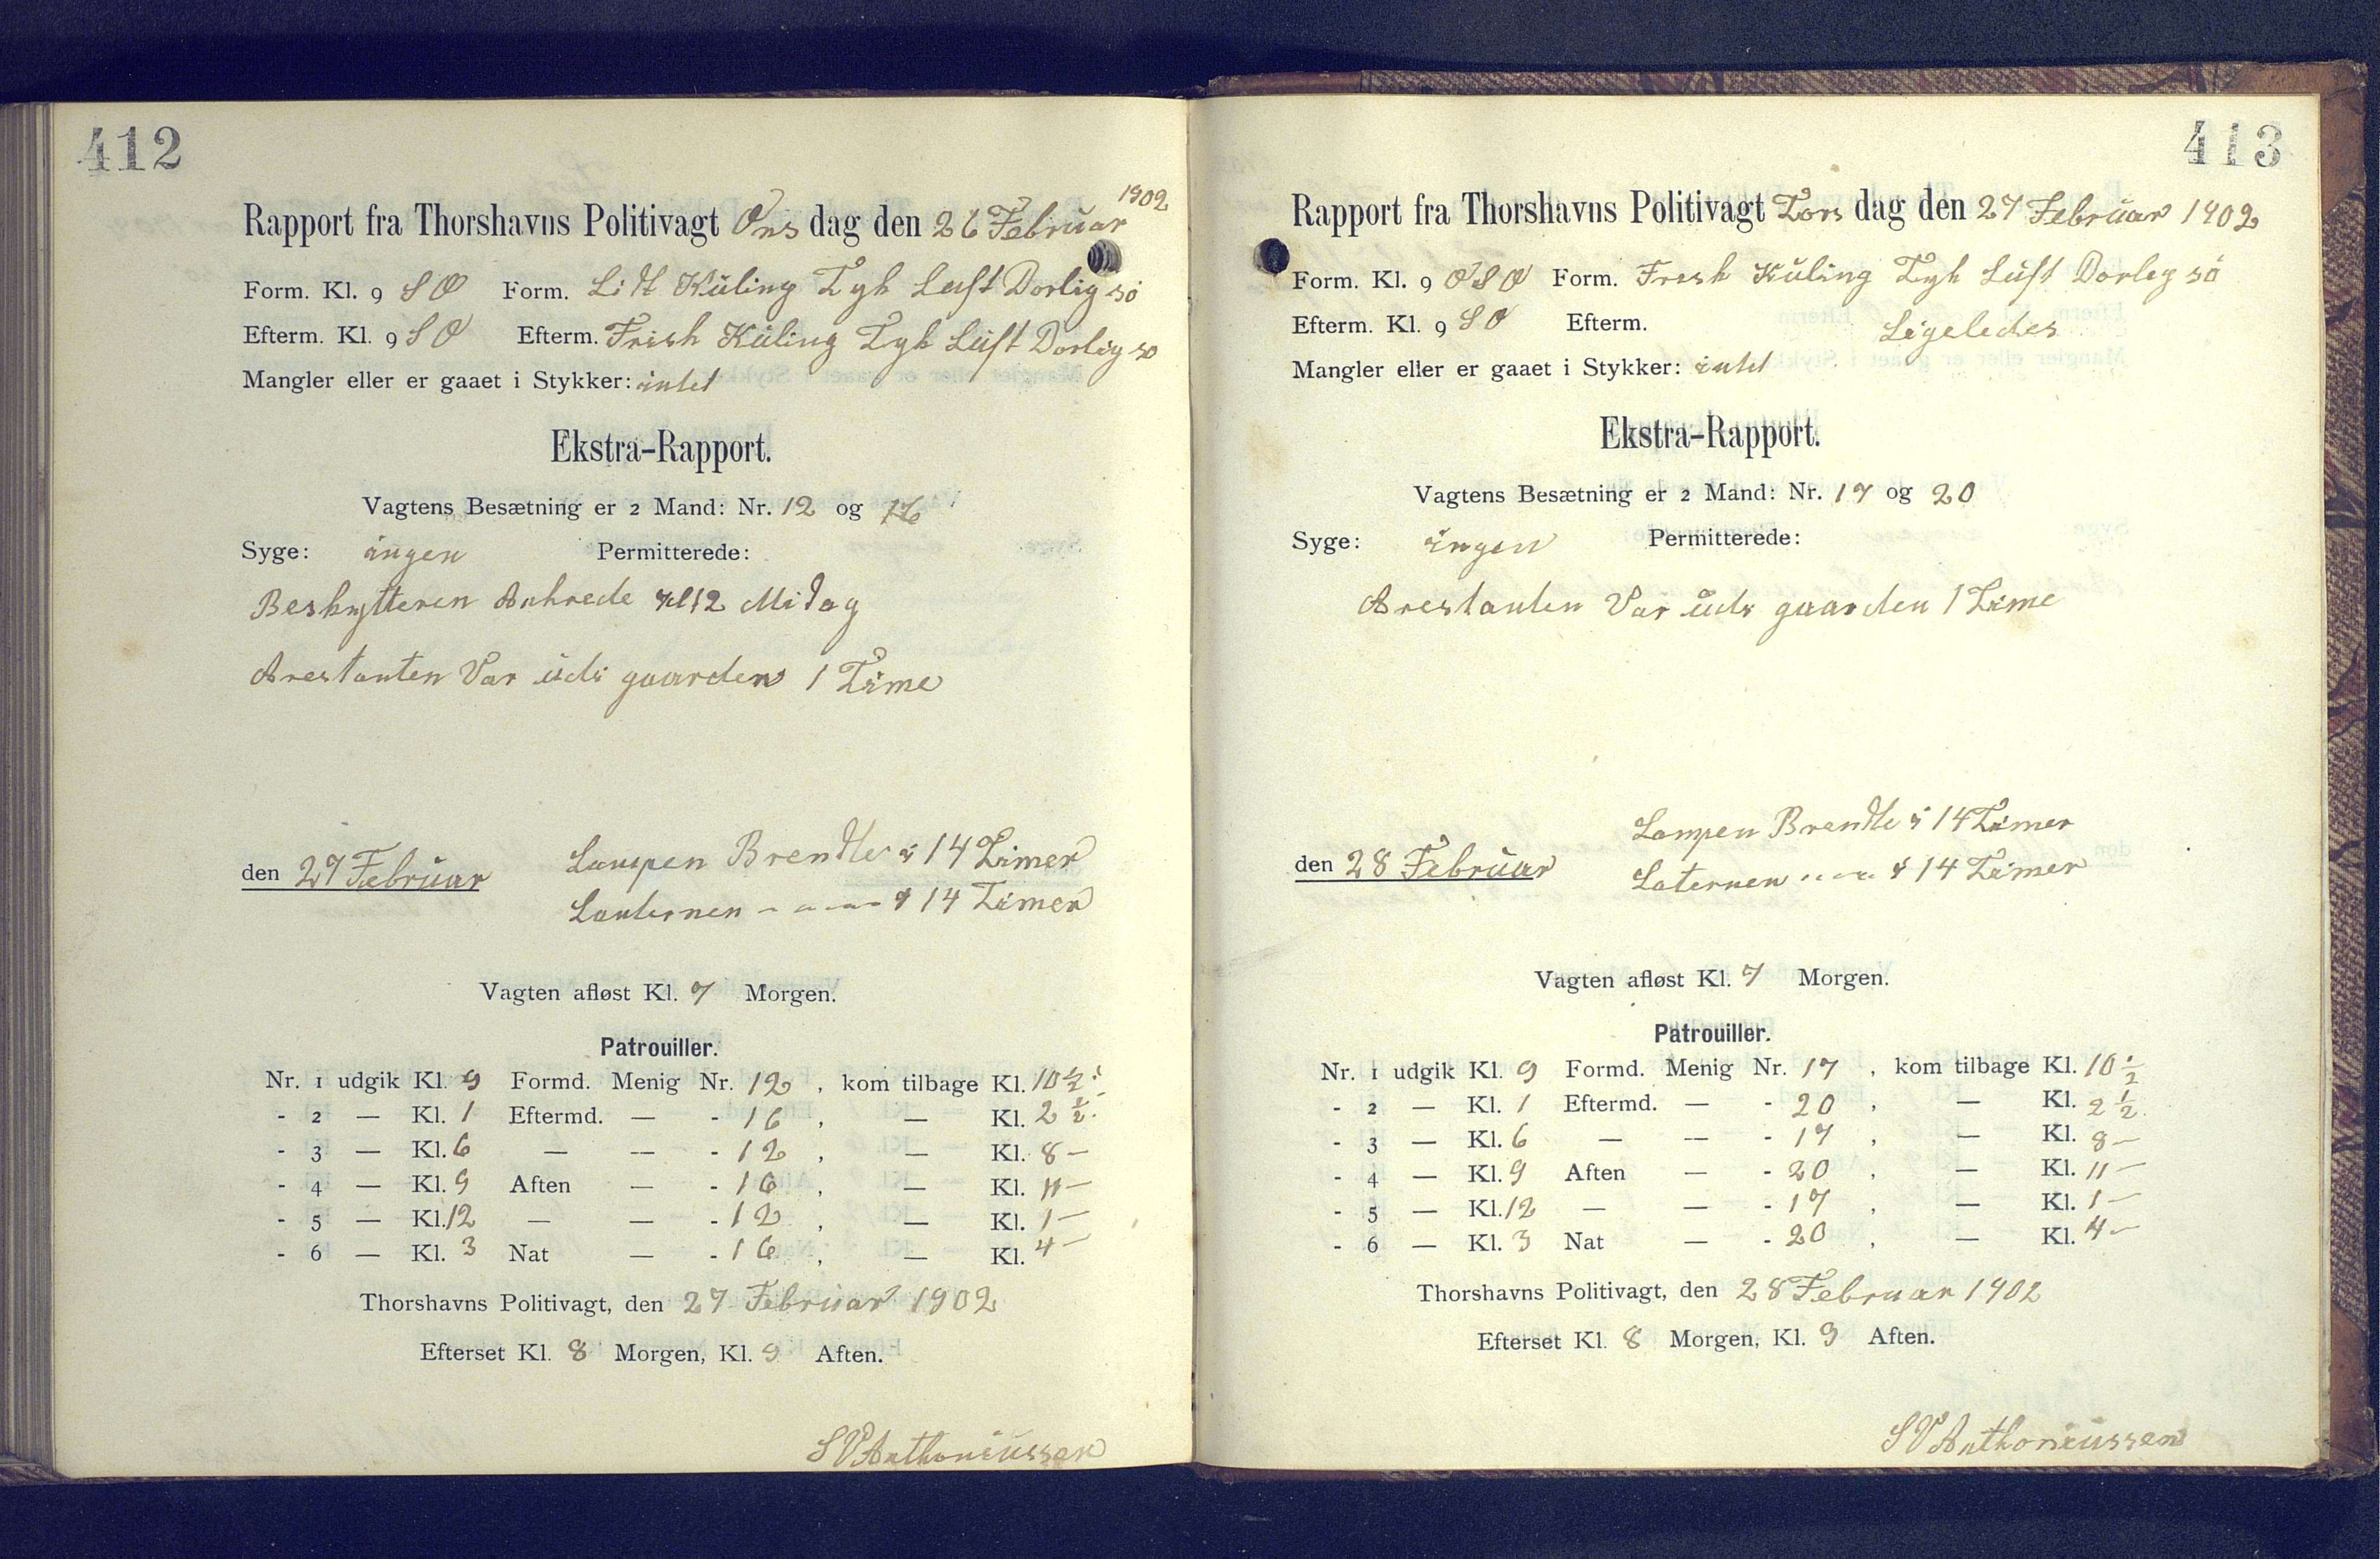 412
Rapport fra Thorshavns Politivagt Ons dag den 26 Februar 1902
Form. Kl. 9 S O Form. Lidt Kuling Tyk Luft Dorlig sö
Efterm. Kl. 9 S O Efterm. Frisk Kuling Tyk Luft Dorlig sö
Mangler eller er gaaet i Stykker: intet
Ekstra-Rapport.
Vagtens Besætning er 2 Mand: Nr. 12 og 16
Syge: ingen Permitterede:
Beskytteren Ankrede Kl 12 Midag
Arestanten Var udi gaarden 1 Time
den 27 Februar Lampen Brendte i 14 Timer
Lanternen - - - - i 14 Timer
Vagten afløst Kl. 7 Morgen.
Patrouiller.
Nr. 1 udgik Kl. 9 Formd. Menig Nr. 12, kom tilbage Kl. 10 1/2
- 2 — Kl. 1 Eftermd. — - 16, — Kl. 2 1/2
- 3 — Kl. 6 — — - 12, — Kl. 8 —
- 4 — Kl. 9 Aften — - 16, — Kl. 11 —
- 5 — Kl. 12 — — - 12, — Kl. 1 —
- 6 — Kl. 3 Nat — - 16, — Kl. 4 —
Thorshavns Politivagt, den 27 Februar 1902
Efterset Kl. 8 Morgen, Kl. 9 Aften.
S V Anthoniussen
413
Rapport fra Thorshavns Politivagt Tors dag den 27 Februar 1902
Form. Kl. 9 O S O Form. Fresk Kuling Tyk Luft Dorleg sö
Efterm. Kl. 9 S O Efterm. Ligeledes
Mangler eller er gaaet i Stykker: intet
Ekstra-Rapport.
Vagtens Besætning er 2 Mand: Nr. 17 og 20
Syge: ingen Permitterede:
Arestanten Var udi gaarden 1 Time
den 28 Februar Lampen Brendte i 14 Timer
Laternen - - - - i 14 Timer
Vagten afløst Kl. 7 Morgen.
Patrouiller.
Nr. 1 udgik Kl. 9 Formd. Menig Nr. 17, kom tilbage Kl. 10 1/2
- 2 — Kl. 1 Eftermd. — - 20, — Kl. 2 1/2
- 3 — Kl. 6 — — - 17, — Kl. 8 —
- 4 — Kl. 9 Aften — - 20, — Kl. 11 —
- 5 — Kl. 12 — — - 17, — Kl. 1 —
- 6 — Kl. 3 Nat — - 20, — Kl. 4 —
Thorshavns Politivagt, den 28 Februar 1902
Efterset Kl. 8 Morgen, Kl. 9 Aften.
S V Anthoniussen